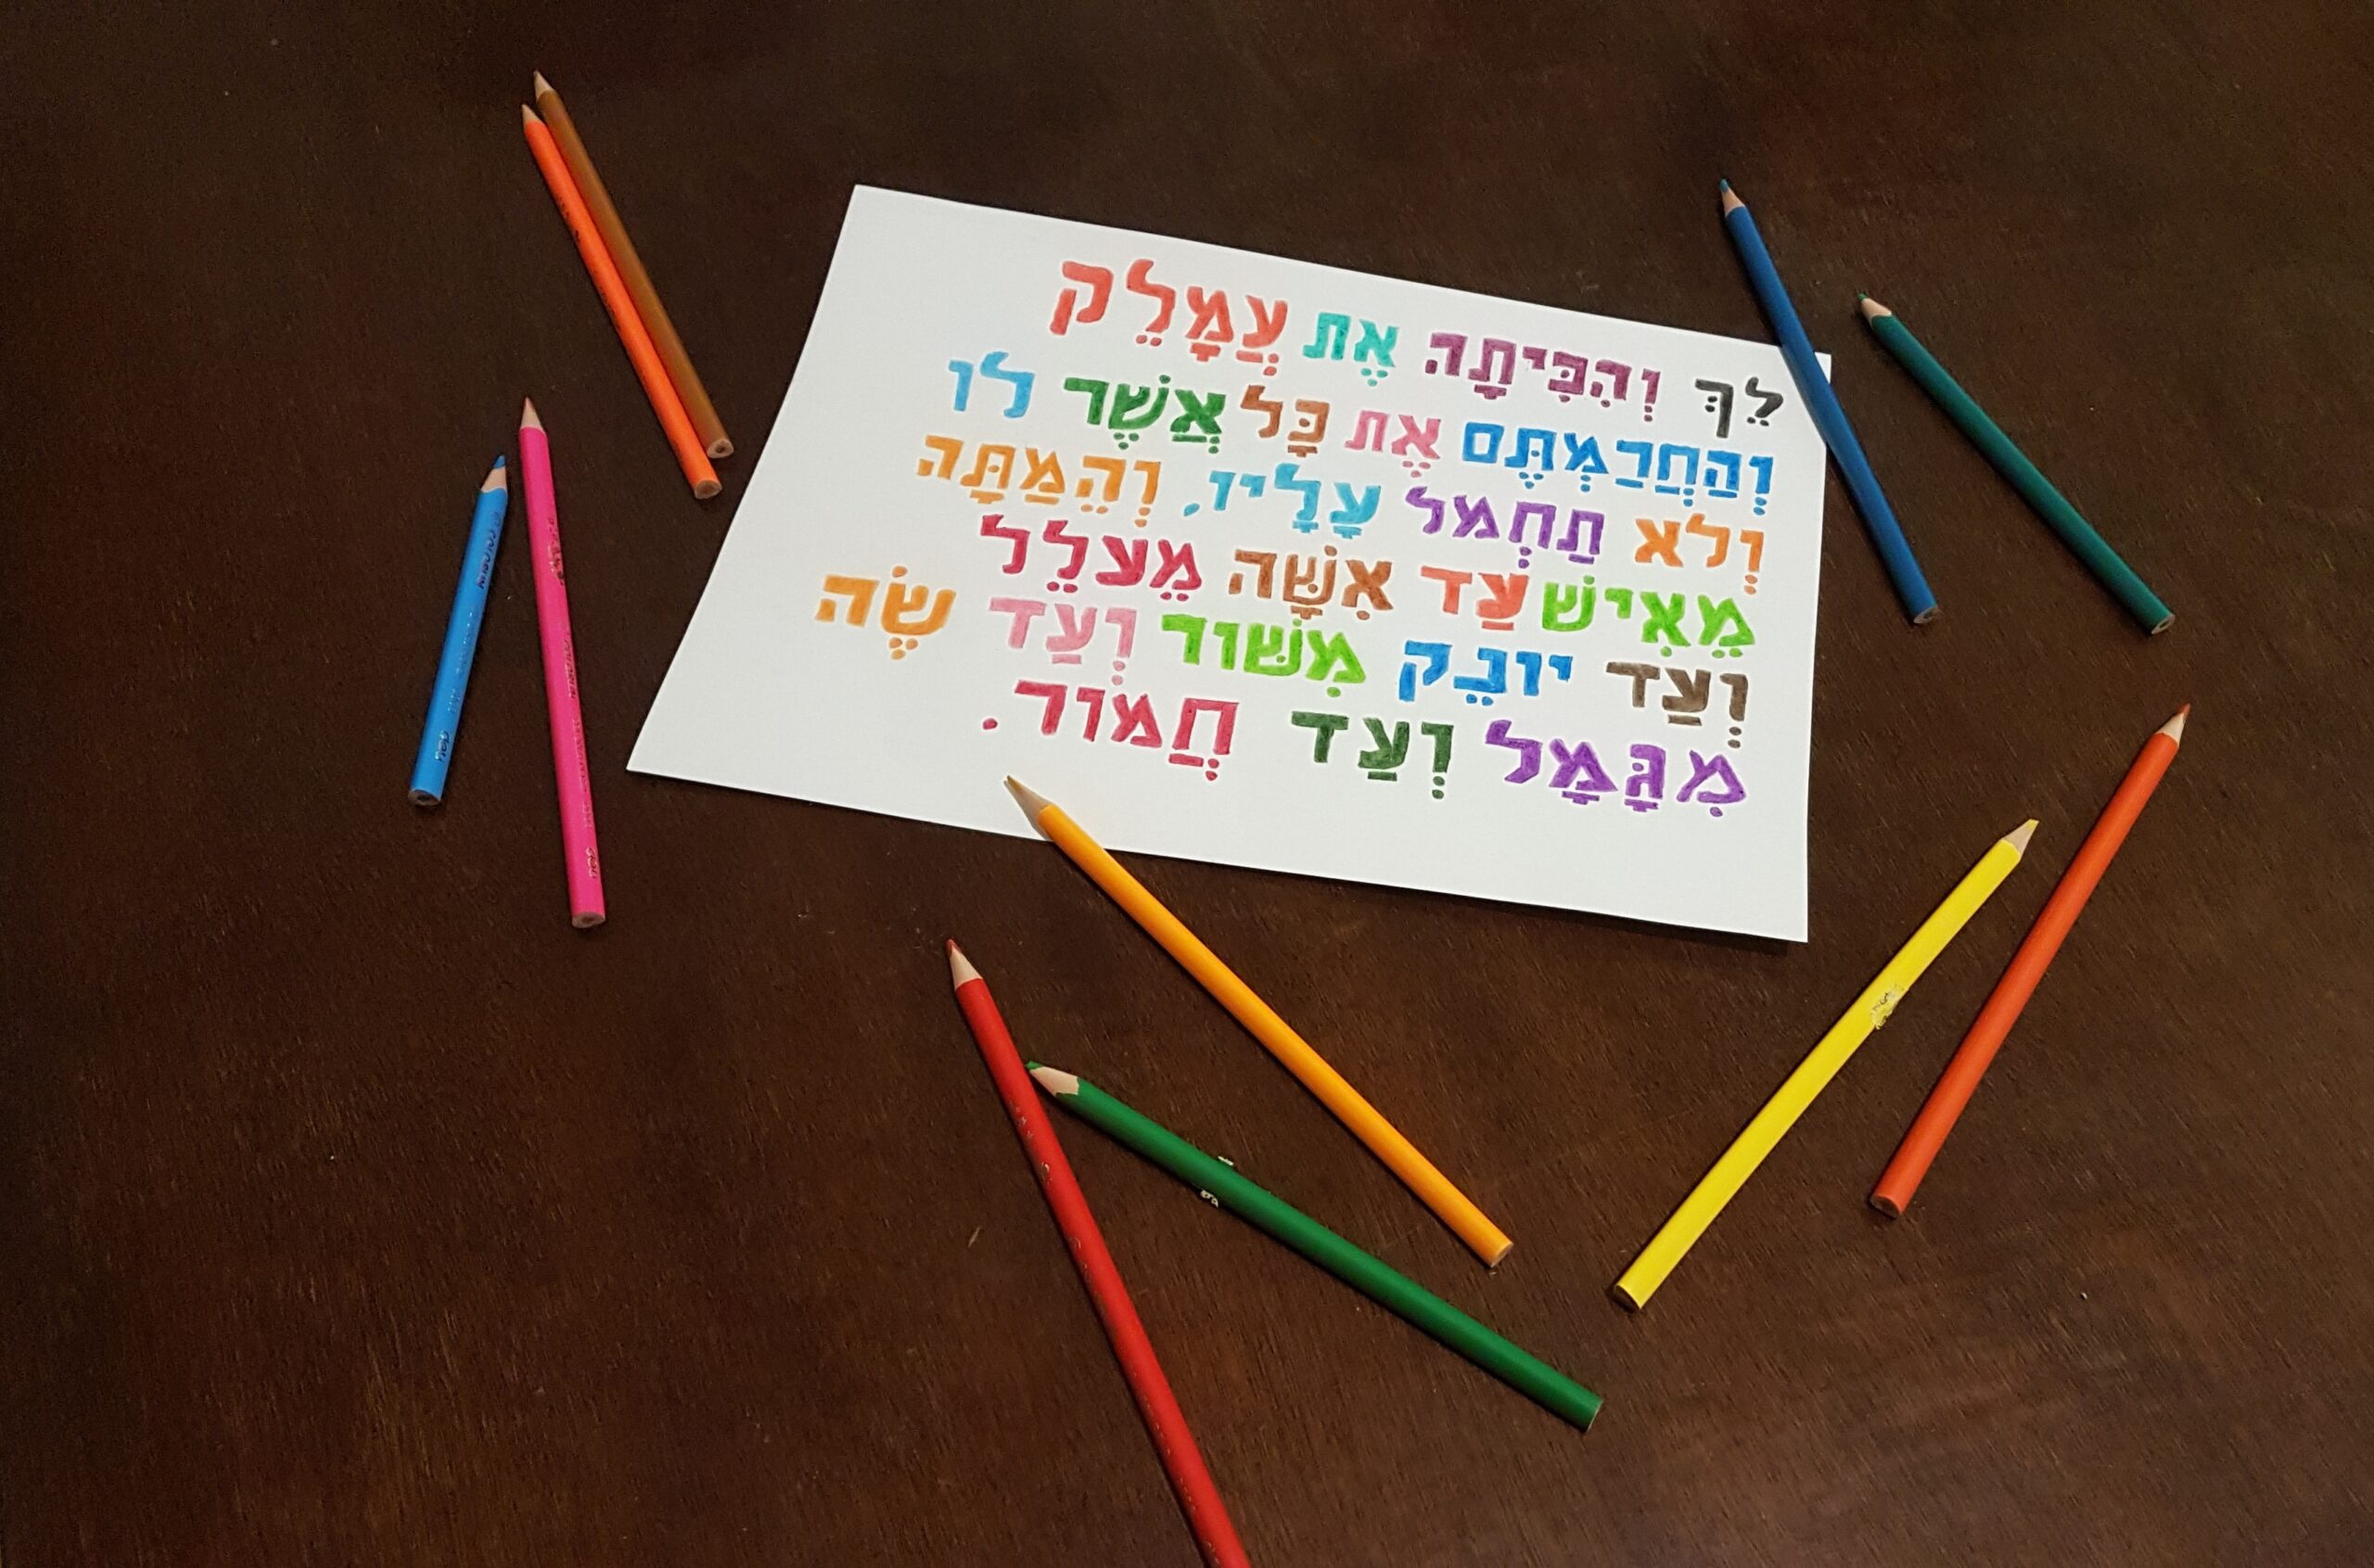 לֵךְ וְהִכִּיתָה אֶת עֲמָלֵק
וְהַחֲרַמְתֶּם אֶת כָּל אֲשֶׁר לו
וְלא תַחְמל עָלָיו, וְהֵמַתָּה
מֵאִישׁ עַד אִשָּׁה מֵעלֵל
וְעַד יונֵק מִשּׁור וְעַד שֶׂה
מִגָּמָל וְעַד חֲמור.